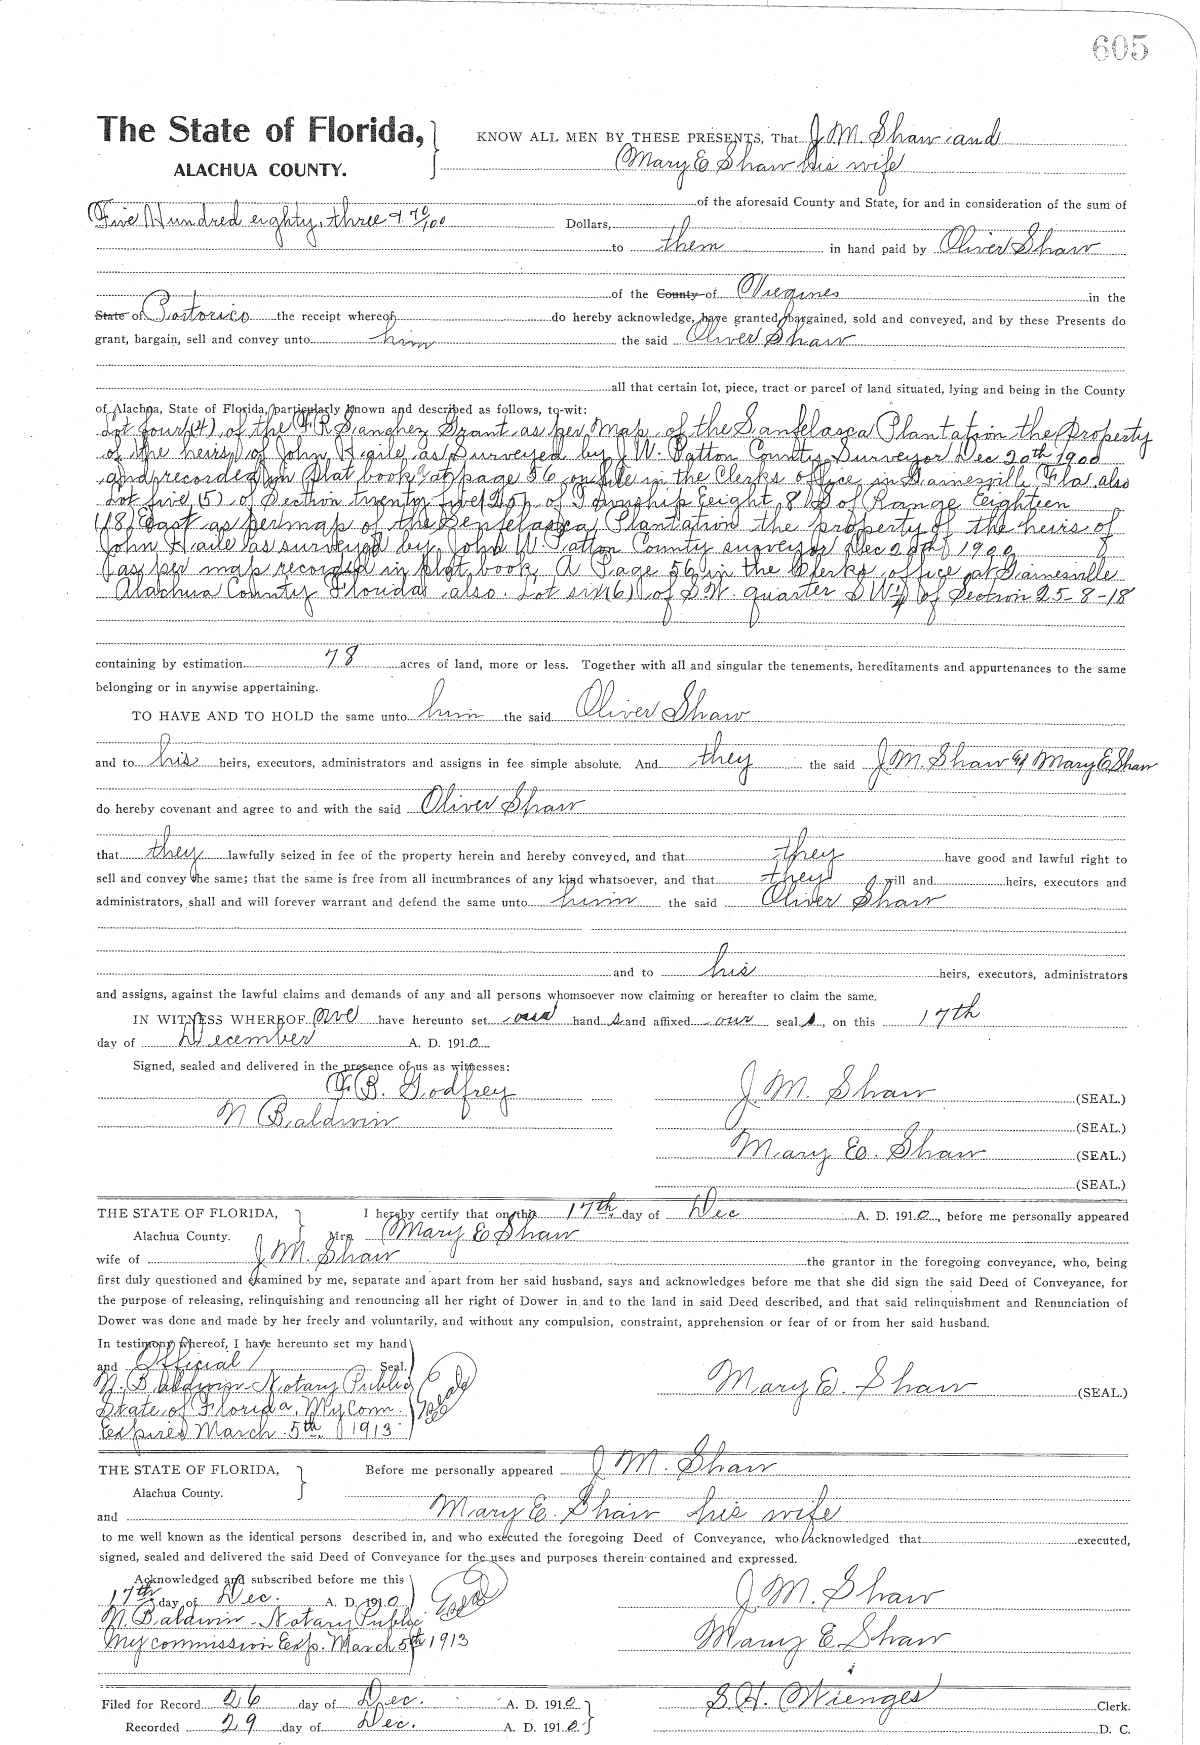 605
The State of Florida, KNOW ALL MEN BY THESE PRESENTS, That J. M. Shaw and
ALACHUA COUNTY. Mary E Shaw his wife
of the aforesaid County and State, for and in consideration of the sum of
Five Hundred eighty, three & 70/100 Dollars,
to them in hand paid by Oliver Shaw
of the County of Vieques in the
State of Portorico the receipt whereof do hereby acknowledge, have granted, bargained, sold and conveyed, and by these Presents do
grant, bargain, sell and convey unto him the said Oliver Shaw
all that certain lot, piece, tract or parcel of land situated, lying and being in the County
of Alachua, State of Florida, particularly known and described as follows, to-wit:
Lot four (4) of the F. R. Sanchez Grant as per Map of the Sanfelasca Plantation the Property
of the heirs of John Haile as Surveyed by J. W. Patton County Surveyor Dec 20th 1900
and recorded in Plat book at page 56 on file in the Clerks office in Gainesville Fla also
Lot five (5) of Section twenty five (25) of Township Eeight 8 S of Range Eighteen
(18) East as per map of the Senfelasca Plantation the property of the heirs of
John Haile as surveyed by John W. Patton County surveyor Dec 20th 1900
as per map recorded in plat book A Page 56 in the Clerks office at Gainesville
Alachua County Florida also Lot six (6) of S.W. quarter S W 1/4 of Section 25-8-18
containing by estimation 78 acres of land, more or less. Together with all and singular the tenements, hereditaments and appurtenances to the same
belonging or in anywise appertaining.
TO HAVE AND TO HOLD the same unto him the said Oliver Shaw
and to his heirs, executors, administrators and assigns in fee simple absolute. And they the said J M Shaw & Mary E Shaw
do hereby covenant and agree to and with the said Oliver Shaw
that they lawfully seized in fee of the property herein and hereby conveyed, and that they have good and lawful right to
sell and convey the same; that the same is free from all incumbrances of any kind whatsoever, and that they will and heirs, executors and
administrators, shall and will forever warrant and defend the same unto him the said Oliver Shaw
and to his heirs, executors, administrators
and assigns, against the lawful claims and demands of any and all persons whomsoever now claiming or hereafter to claim the same.
IN WITNESS WHEREOF we have hereunto set our hand s and affixed our seal s, on this 17th
day of December A. D. 1910
Signed, sealed and delivered in the presence of us as witnesses:
F. B. Godfrey J. M. Shaw (SEAL.)
N Baldwin (SEAL.)
Mary E. Shaw (SEAL.)
(SEAL.)
THE STATE OF FLORIDA, I hereby certify that on this 17th day of Dec A. D. 1910, before me personally appeared
Alachua County. Mrs. Mary E Shaw
wife of J M. Shaw the grantor in the foregoing conveyance, who, being
first duly questioned and examined by me, separate and apart from her said husband, says and acknowledges before me that she did sign the said Deed of Conveyance, for
the purpose of releasing, relinquishing and renouncing all her right of Dower in and to the land in said Deed described, and that said relinquishment and Renunciation of
Dower was done and made by her freely and voluntarily, and without any compulsion, constraint, apprehension or fear of or from her said husband.
In testimony whereof, I have hereunto set my hand
and Official Seal.
N. Baldwin - Notary Public Seal Mary E. Shaw (SEAL.)
State of Florida, My Com.
Expires March 5th 1913
THE STATE OF FLORIDA, Before me personally appeared J M. Shaw
Alachua County.
and Mary E. Shaw his wife
to me well known as the identical persons described in, and who executed the foregoing Deed of Conveyance, who acknowledged that executed,
signed, sealed and delivered the said Deed of Conveyance for the uses and purposes therein contained and expressed.
Acknowledged and subscribed before me this
17th day of Dec. A. D. 1910 Seal J. M. Shaw
N. Baldwin - Notary Public
My commission Exp. March 5th 1913 Mary E. Shaw
Filed for Record 26 day of Dec. A. D. 1910 S. H. Wienges Clerk.
Recorded 29 day of Dec. A. D. 1910 D. C.